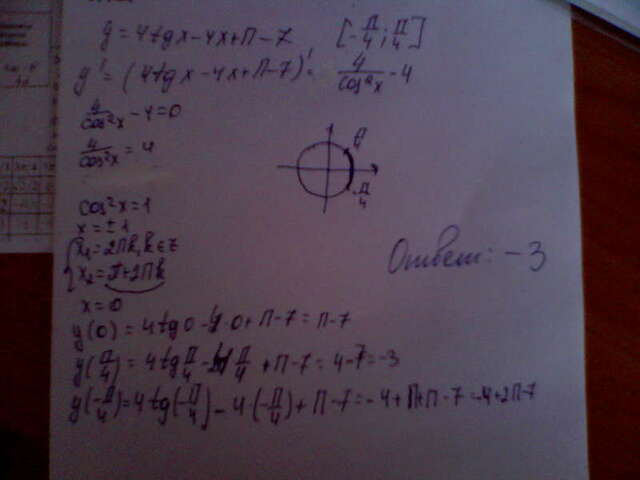 y = 4tgx - 4x + π - 7   [-π/4; π/4]
y' = (4tgx - 4x + π - 7)' = 4/cos²x - 4
4/cos²x - 4 = 0
4/cos²x = 4
π/4
-π/4
cos²x = 1
x = ±1
x₁ = 2πk, k ∈ z
x₂ = π + 2πk
Ответ: -3
x = 0
y(0) = 4tg0 - 4·0 + π - 7 = π - 7
y(π/4) = 4tgπ/4 - 4·π/4 + π - 7 = 4 - 7 = -3
y(-π/4) = 4tg(-π/4) - 4·(-π/4) + π - 7 = -4 + π + π - 7 = -4 + 2π - 7